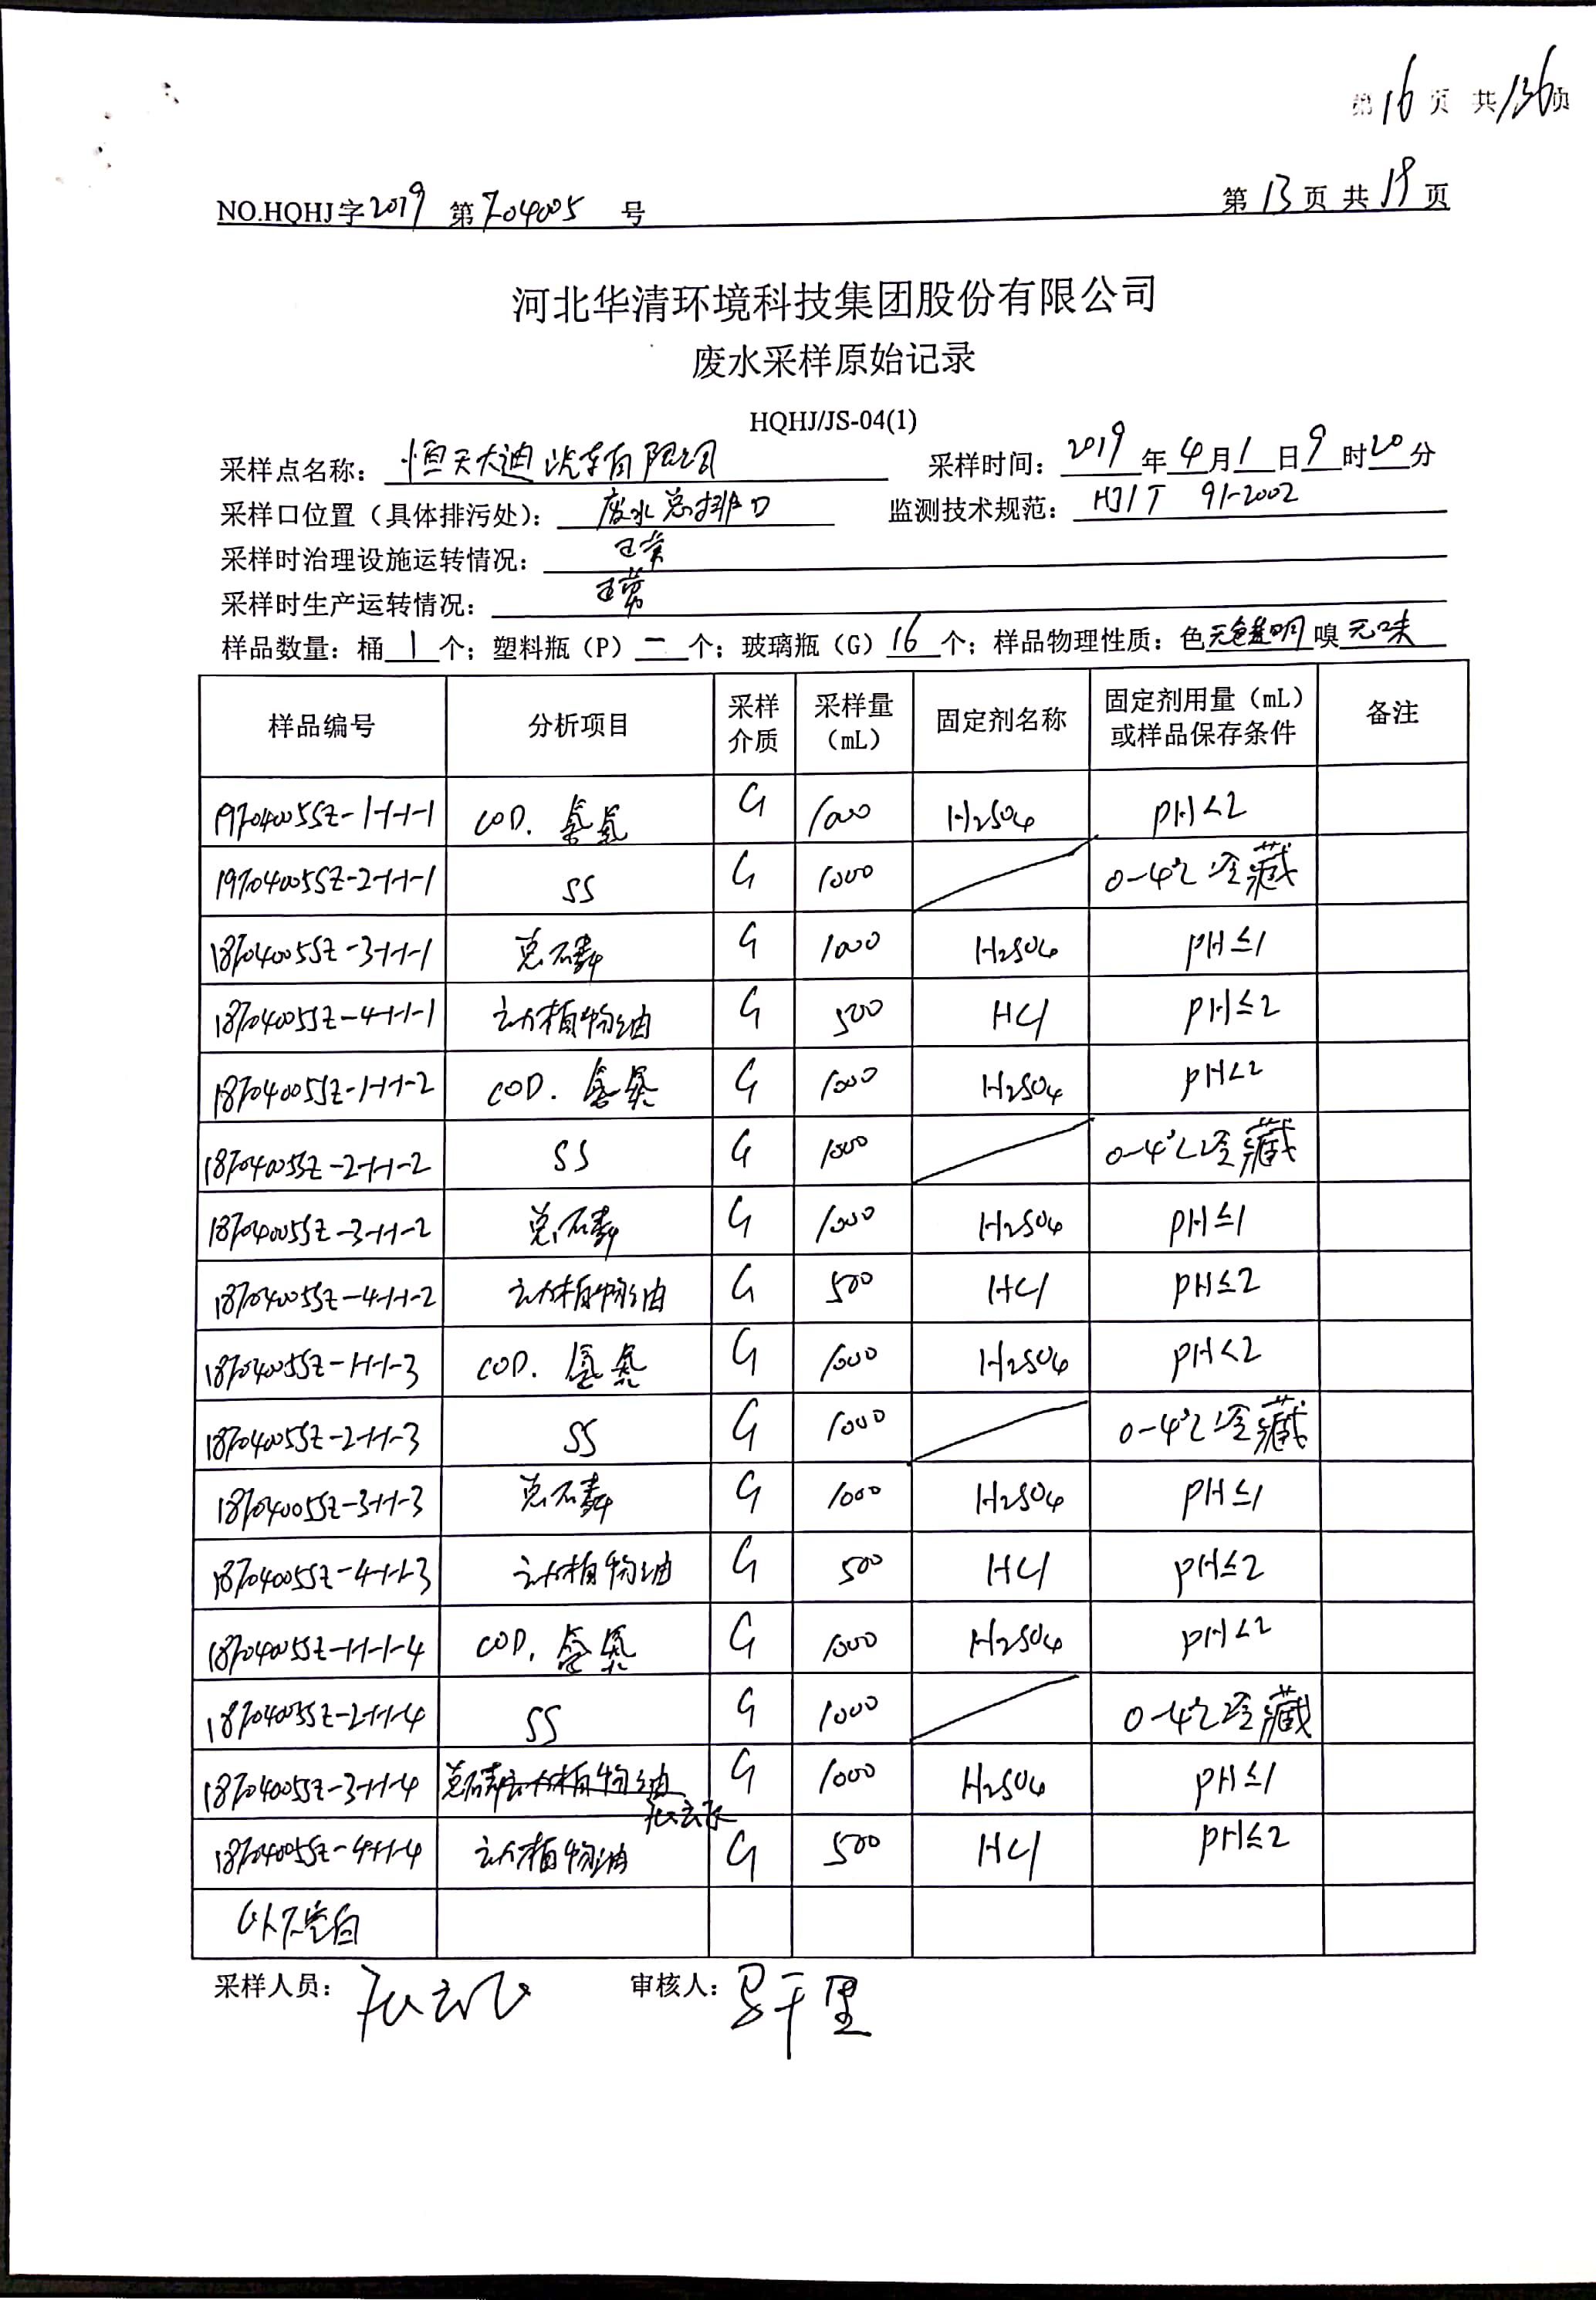 第16页 共136页
NO.HQHJ字2019 第Z04005 号 第13页共18页
河北华清环境科技集团股份有限公司
废水采样原始记录
HQHJ/JS-04(1)
采样点名称：恒天大迪汽车有限公司 采样时间：2019年4月1日9时20分
采样口位置（具体排污处）：废水总排口 监测技术规范：HJ/T 91-2002
采样时治理设施运转情况：正常
采样时生产运转情况：正常
样品数量：桶1个；塑料瓶（P）一个；玻璃瓶（G）16个；样品物理性质：色无色透明嗅无味
样品编号 分析项目 采样介质 采样量（mL） 固定剂名称 固定剂用量（mL）或样品保存条件 备注
19Z04005SZ-1-1-1-1 COD.氨氮 G 1000 H2SO4 pH<2
19Z04005SZ-2-1-1-1 SS G 1000 0-4℃冷藏
18Z04005SZ-3-1-1-1 总磷 G 1000 H2SO4 pH≤1
18Z04005SZ-4-1-1-1 动植物油 G 500 HCl pH≤2
18Z04005SZ-1-1-1-2 COD.氨氮 G 1000 H2SO4 pH<2
18Z04005SZ-2-1-1-2 SS G 1000 0-4℃冷藏
18Z04005SZ-3-1-1-2 总磷 G 1000 H2SO4 pH≤1
18Z04005SZ-4-1-1-2 动植物油 G 500 HCl pH≤2
18Z04005SZ-1-1-1-3 COD.氨氮 G 1000 H2SO4 pH<2
18Z04005SZ-2-1-1-3 SS G 1000 0-4℃冷藏
18Z04005SZ-3-1-1-3 总磷 G 1000 H2SO4 pH≤1
18Z04005SZ-4-1-1-3 动植物油 G 500 HCl pH≤2
18Z04005SZ-1-1-1-4 COD.氨氮 G 1000 H2SO4 pH<2
18Z04005SZ-2-1-1-4 SS G 1000 0-4℃冷藏
18Z04005SZ-3-1-1-4 总磷动植物油 G 1000 H2SO4 pH≤1
18Z04005SZ-4-1-1-4 动植物油 G 500 HCl pH≤2
以下空白
采样人员： 审核人：